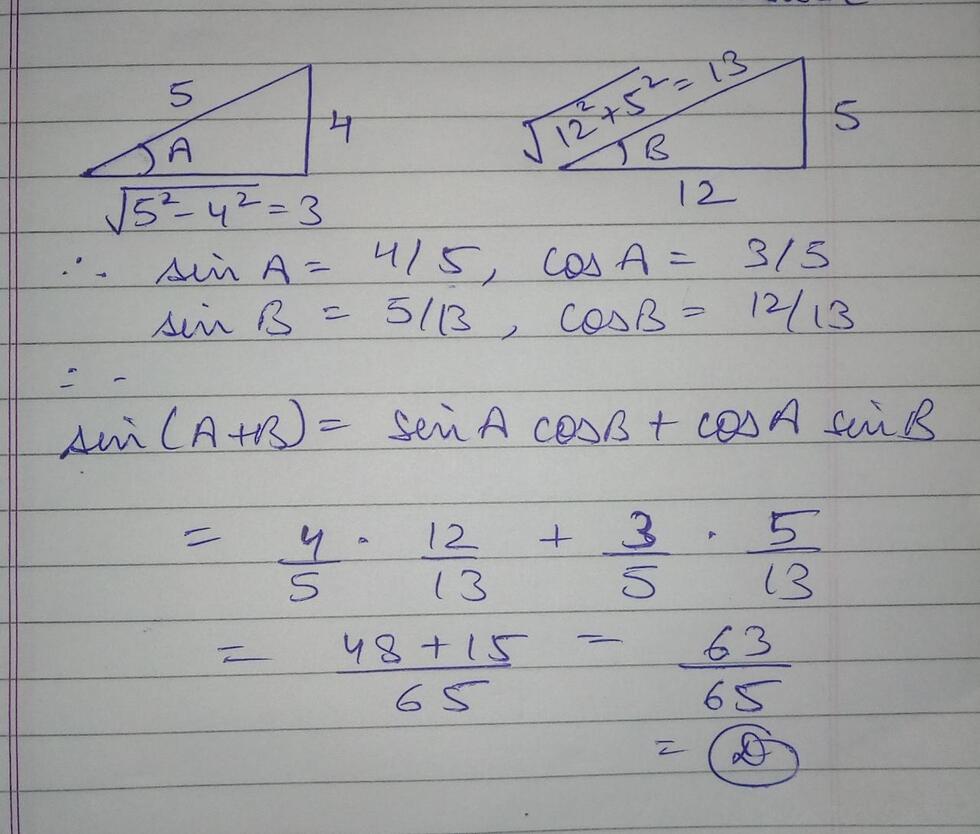 5
4
A
√5²-4² = 3
√12²+5² = 13
5
B
12
∴ sin A = 4/5, cos A = 3/5
sin B = 5/13, cosB = 12/13
∴
sin(A+B) = sinA cosB + cosA sinB
= 4/5 · 12/13 + 3/5 · 5/13
= 48+15/65 = 63/65
= D